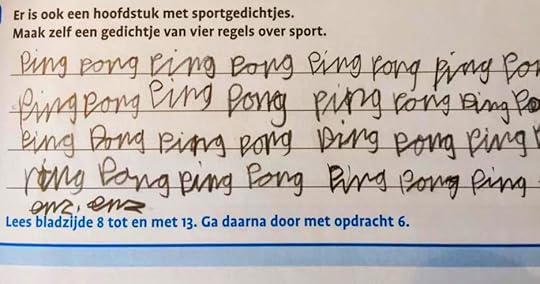 Er is ook een hoofdstuk met sportgedichtjes.
Maak zelf een gedichtje van vier regels over sport.
ping pong ping pong ping pong ping pon
ping pong ping pong ping pong ping po
ping pong ping pong ping pong ping
ping pong ping pong ping pong ping
enz. enz
Lees bladzijde 8 tot en met 13. Ga daarna door met opdracht 6.